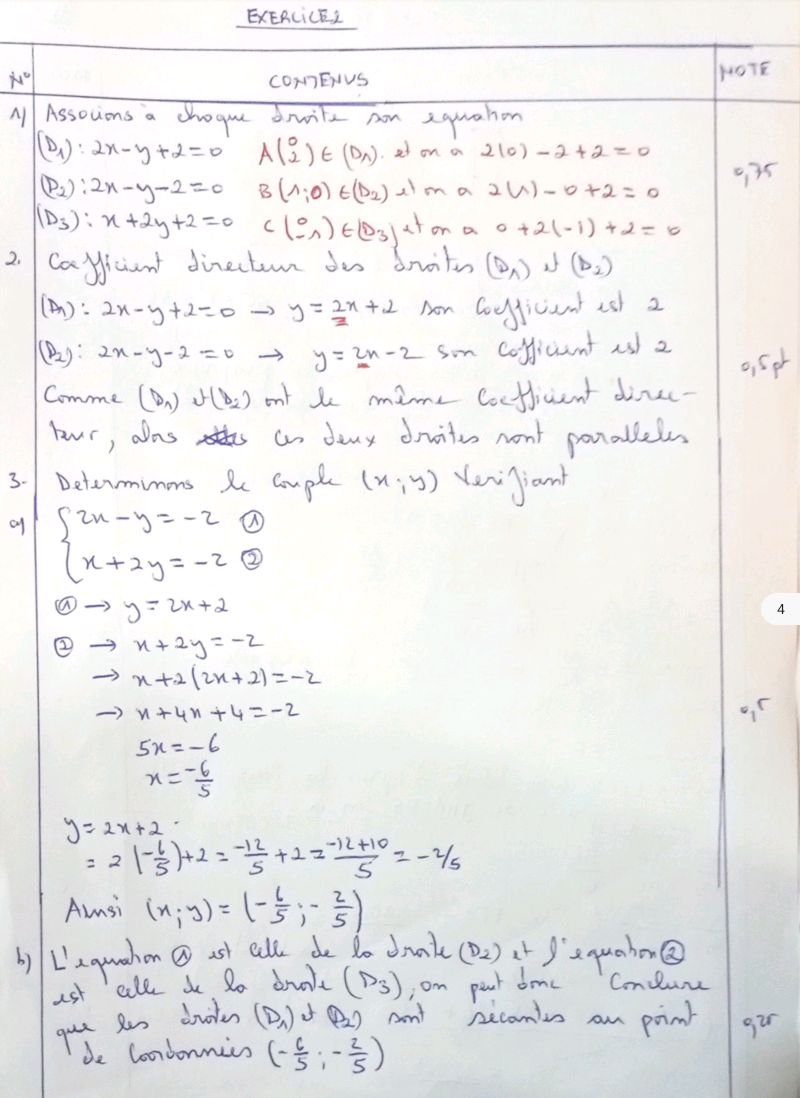 EXERCICE2
N° CONTENUS NOTE
1) Associons à chaque droite son equation
(D₁): 2x-y+2=0 A(0 2) ∈ (D₁). et on a 2(0)-2+2=0
0,75
(D₂): 2x-y-2=0 B(1;0) ∈ (D₂) et on a 2(1)-0+2=0
(D₃): x+2y+2=0 C(0 -1) ∈ (D₃) et on a 0+2(-1)+2=0
2. Coefficient directeur des droites (D₁) et (D₂)
(D₁): 2x-y+2=0 → y=2x+2 son Coefficient est 2
(D₂): 2x-y-2=0 → y=2x-2 son cofficient est 2
0,5pt
Comme (D₁) et (D₂) ont le même Coefficient direc-
teur, alors ces deux droites sont paralleles
3- Determinons le couple (x;y) Verifiant
a) {2x-y=-2 ①
x+2y=-2 ②
① → y=2x+2
4
② → x+2y=-2
→ x+2(2x+2)=-2
→ x+4x+4=-2
0,5
5x=-6
x=-6/5
y=2x+2
= 2(-6/5)+2=-12/5+2=-12+10/5=-2/5
Ainsi (x;y)=(-6/5;-2/5)
b) L'equation ① est celle de la droite (D₂) et l'equation ②
est celle de la droite (D₃), on peut donc Conclure
que les droites (D₁) et (D₂) sont sécantes au point
0,25
de Coordonnées (-6/5;-2/5)